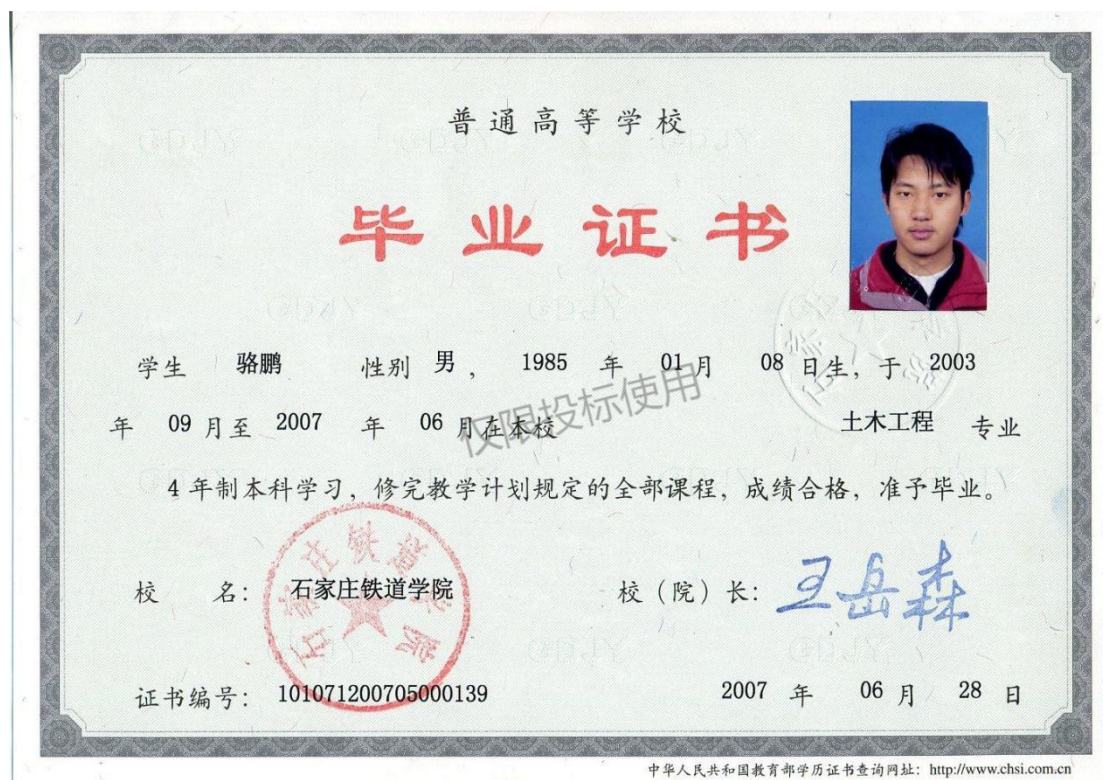 普通高等学校
毕业证书
学生 骆鹏 性别 男, 1985 年 01 月 08 日生, 于 2003
年 09 月至 2007 年 06 月在本校 土木工程 专业
仅限投标使用
4 年制本科学习, 修完教学计划规定的全部课程, 成绩合格, 准予毕业。
校 名: 石家庄铁道学院 校(院)长: 王岳森
石家庄铁道学院
证书编号: 101071200705000139 2007 年 06 月 28 日
中华人民共和国教育部学历证书查询网址: http://www.chsi.com.cn